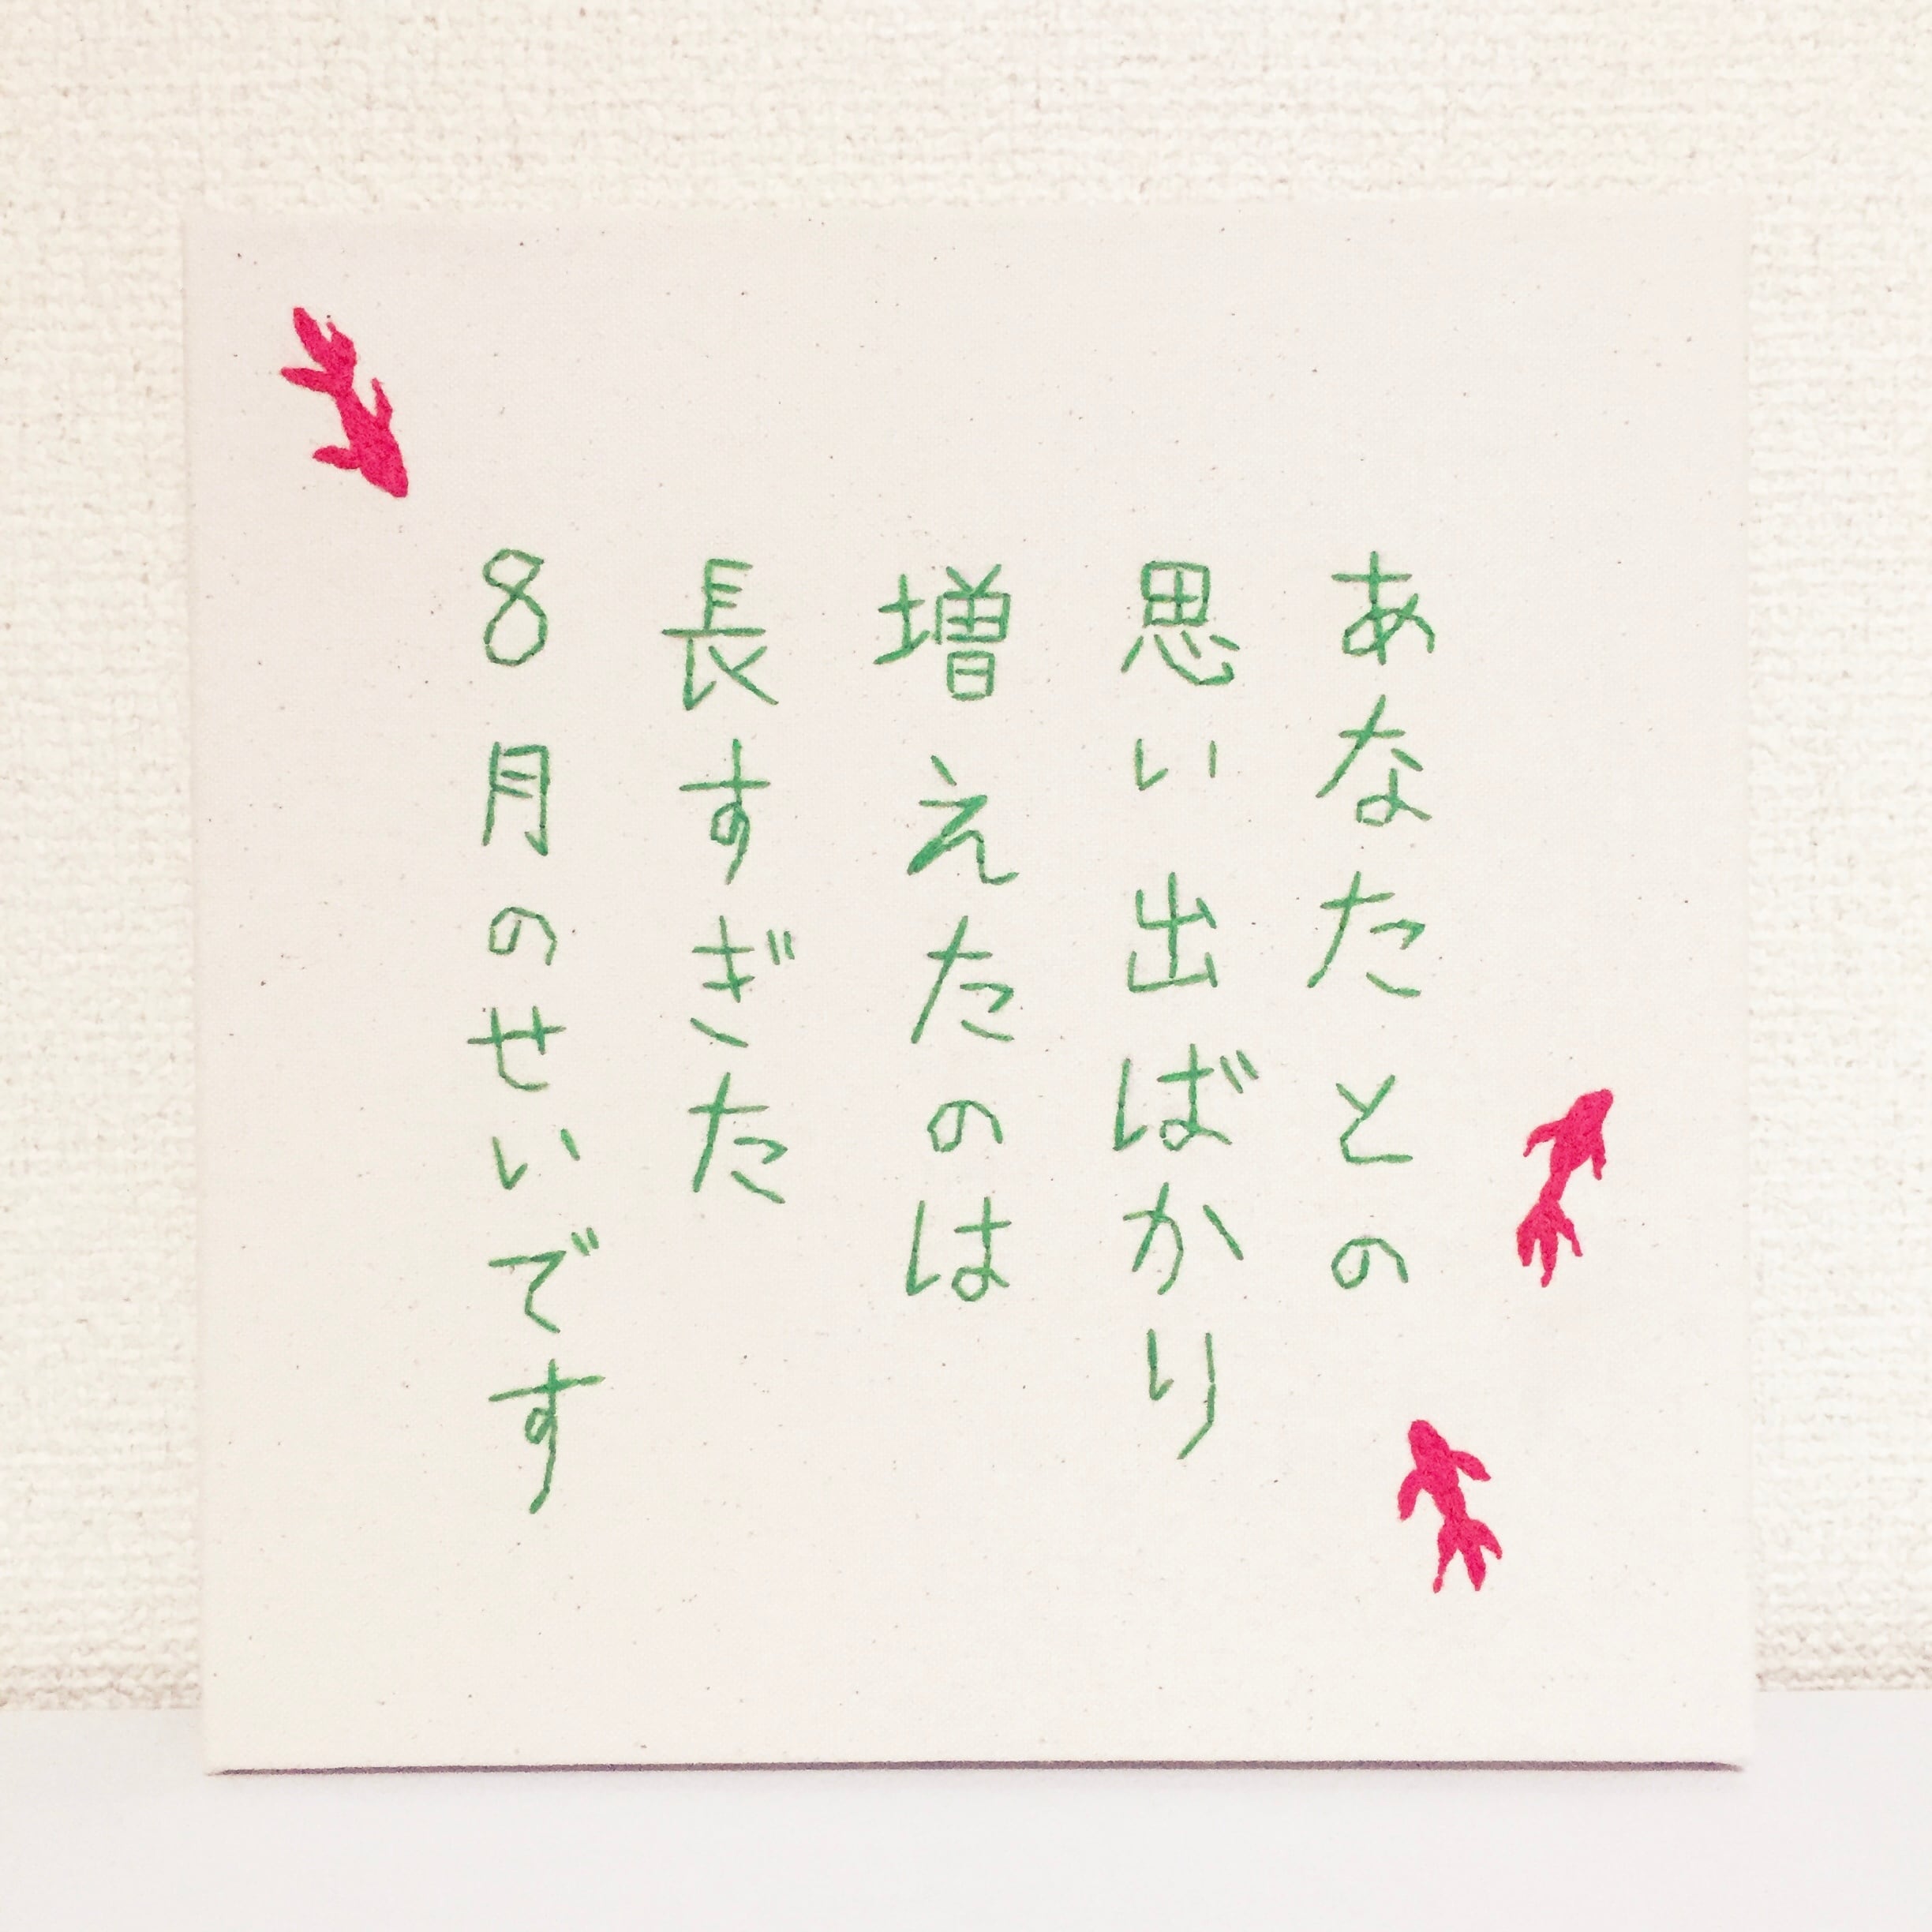 あなたとの
思い出ばかり
増えたのは
長すぎた
8月のせいです